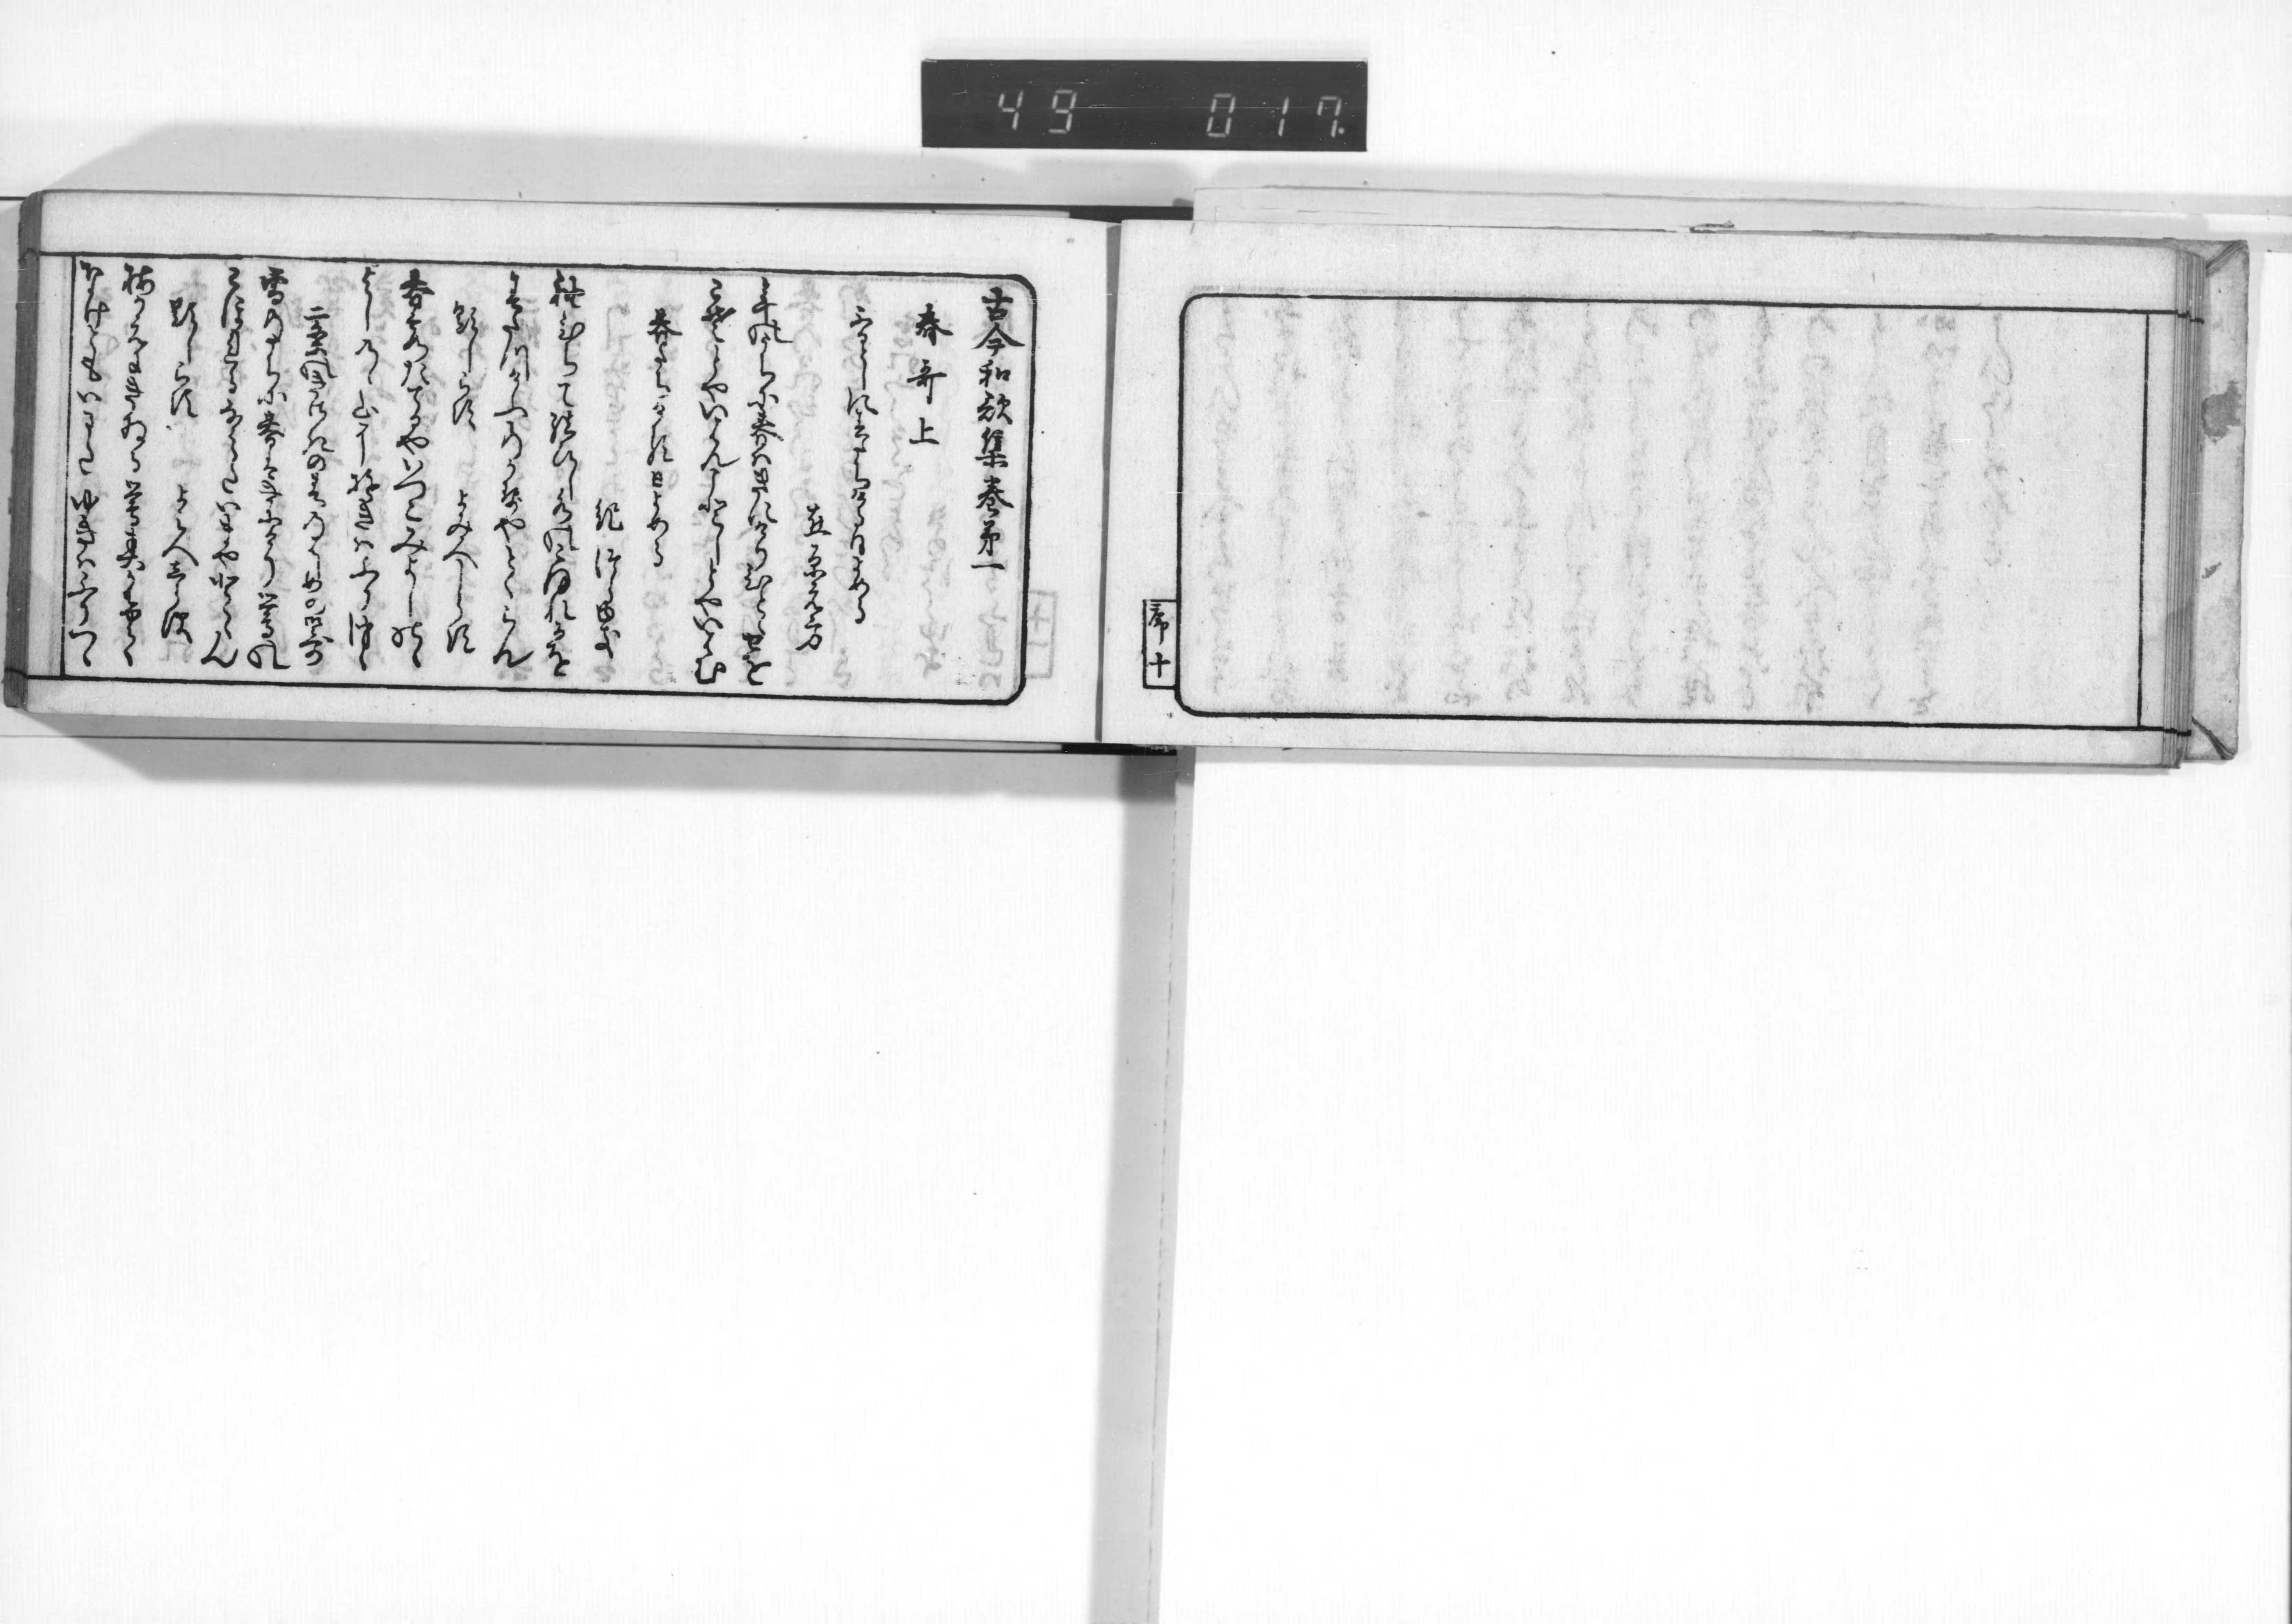 49 017.
序十
古今和歌集巻第一
春哥上
ふるとしに春たちける日よめる
在原元方
年の内に春はきにけり一とせを
こそとやいはんことしとやいはむ
春たちける日よめる
紀つらゆき
袖ひちて結ひし水のこほれるを
春立けふの風やとくらん
題しらす　よみ人しらす
春霞たてるやいつこみよしのゝ
よしのゝ山に雪はふりつゝ
二条のきさきの春のはしめの御哥
雪のうちに春はきにけり鶯の
こほれる泪今やとくらん
題しらす　よみ人しらす
梅かえにきゐる鶯春かけて
なけともいまた雪はふりつゝ